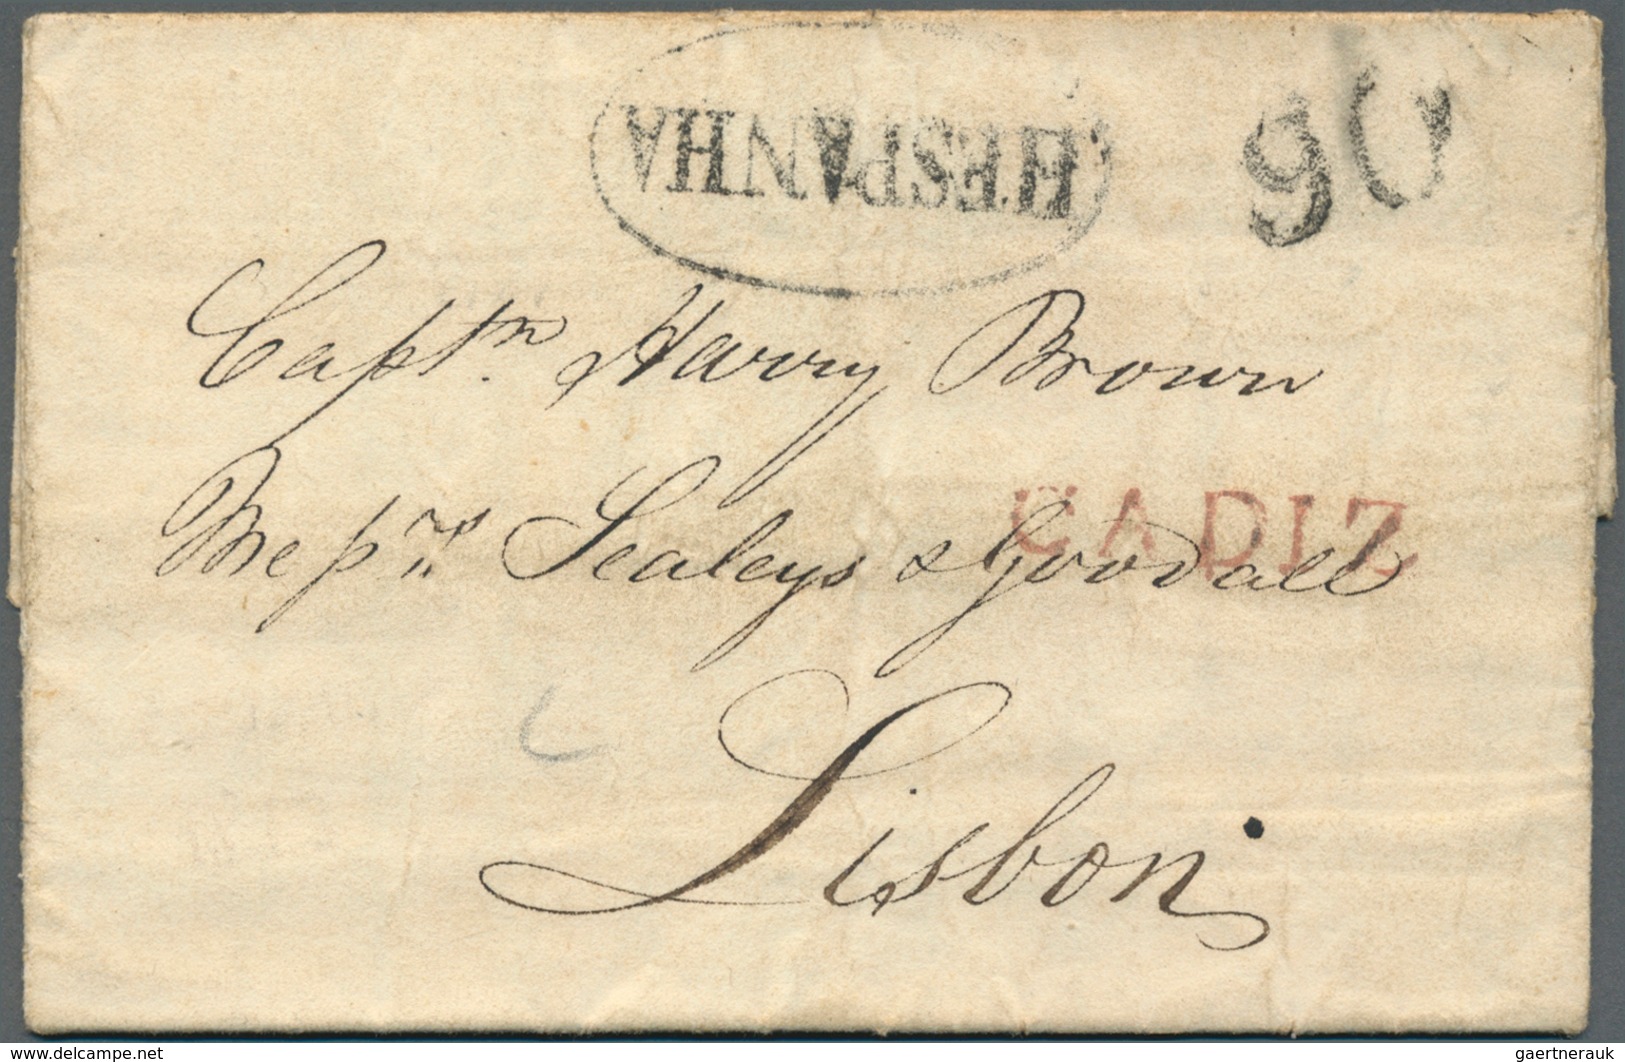 HESPANHA
90
Captn. Harry Brown
CADIZ
Messrs Sealeys & Goodall
Lisbon
www.delcampe.net
gaertnerauk